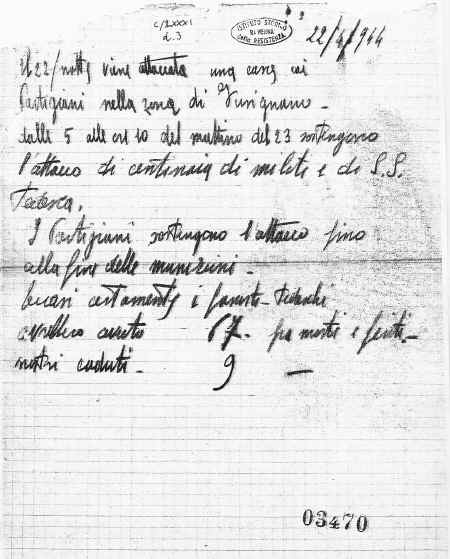 C/LXXXI
d. 3
ISTITUTO STORICO
DELLA RESISTENZA
22/4/944
Il 22/ notte viene attaccata una casa coi
Partigiani nella zona di Fusignano -
dalle 5 alle ore 10 del mattino del 23 sostengono
l'attacco di centinaia di militi e di S.S.
Tedesca,
I Partigiani sostengono l'attacco fino
alla fine delle munizioni -
certamente i fascisti - Tedeschi
avrebbero avuto 67. fra morti e feriti -
nostri caduti - 9 —
03470